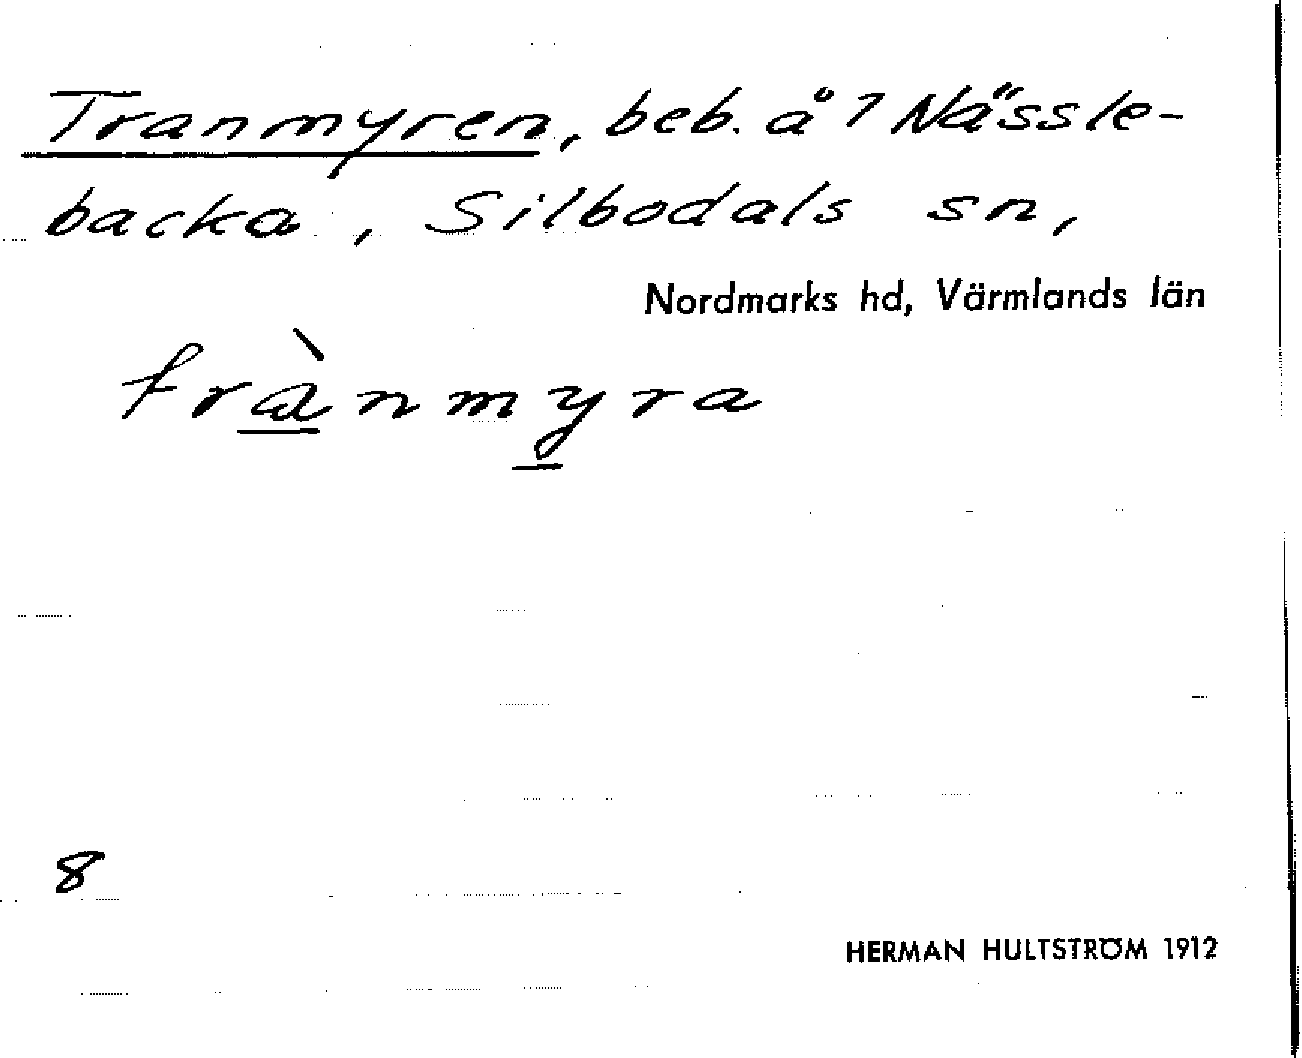 Tranmyren, beb. å 7 Nässle-
backa, Silbodals sn,
Nordmarks hd, Värmlands län
trànmyra
8
HERMAN HULTSTRÖM 1912